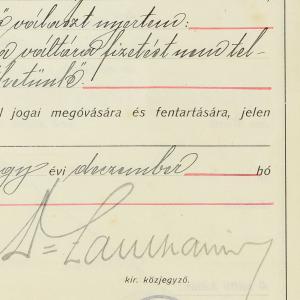 ő választ nyertem:
a váltára fizetést nem tel-
hetünk.
jogai megóvására és fentartására, jelen
évi december hó
kir. közjegyző.